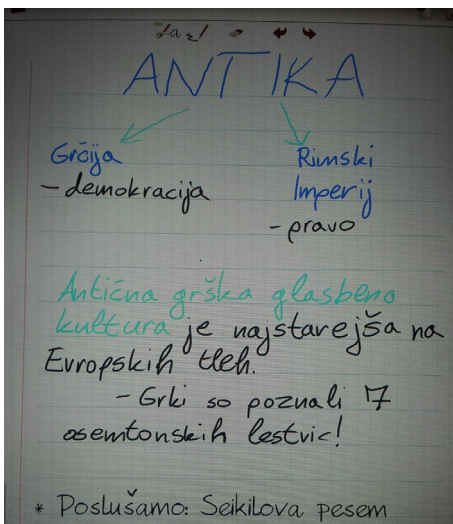 ANTIKA
Grčija
Rimski
– demokracija
Imperij
– pravo
Antična grška glasbeno
kultura je najstarejša na
Evropskih tleh.
– Grki so poznali 7
osemtonskih lestvic!
* Poslušamo: Seikilova pesem